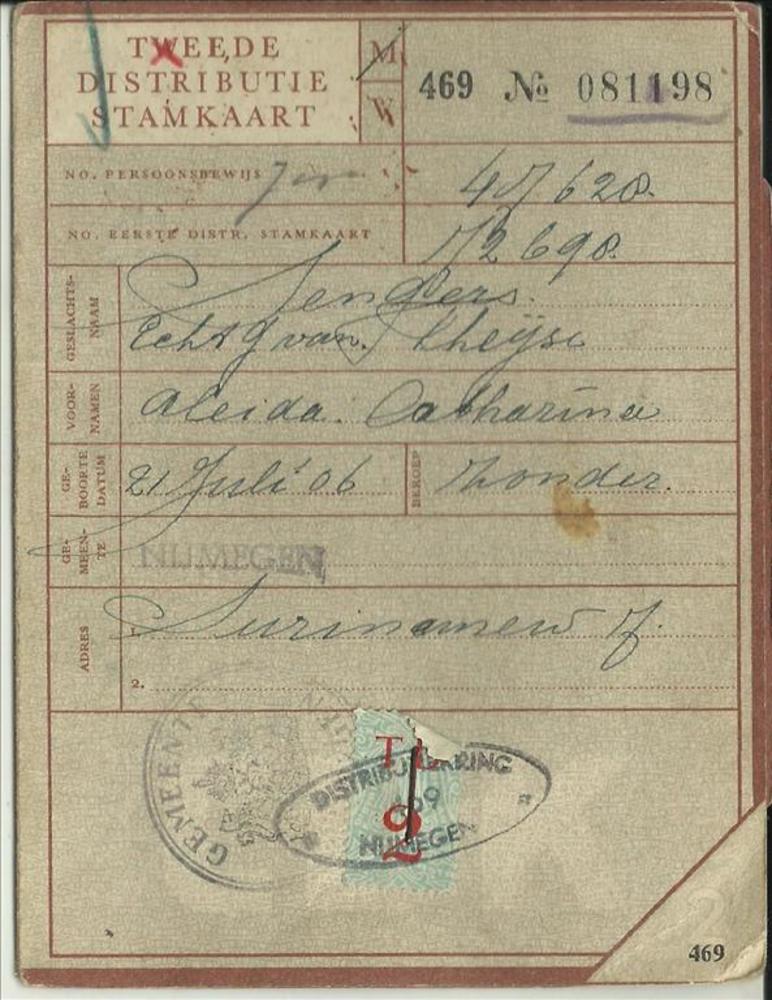 TWEEDE
DISTRIBUTIE
STAMKAART
M
W
469 № 081198
NO. PERSOONSBEWIJS
NO. EERSTE DISTR. STAMKAART 172698.
GESLACHTS-
NAAM
Sengers.
Echtg van. Theijse
VOOR-
NAMEN
Aleida. Catharina
GE-
BOORTE
DATUM
21 Juli '06
BEROEP
zonder.
GE-
MEEN-
TE
NIJMEGEN
ADRES
1.
2.
GEMEENTE
T
2
DISTRIBUTIEKRING
469
NIJMEGEN
469